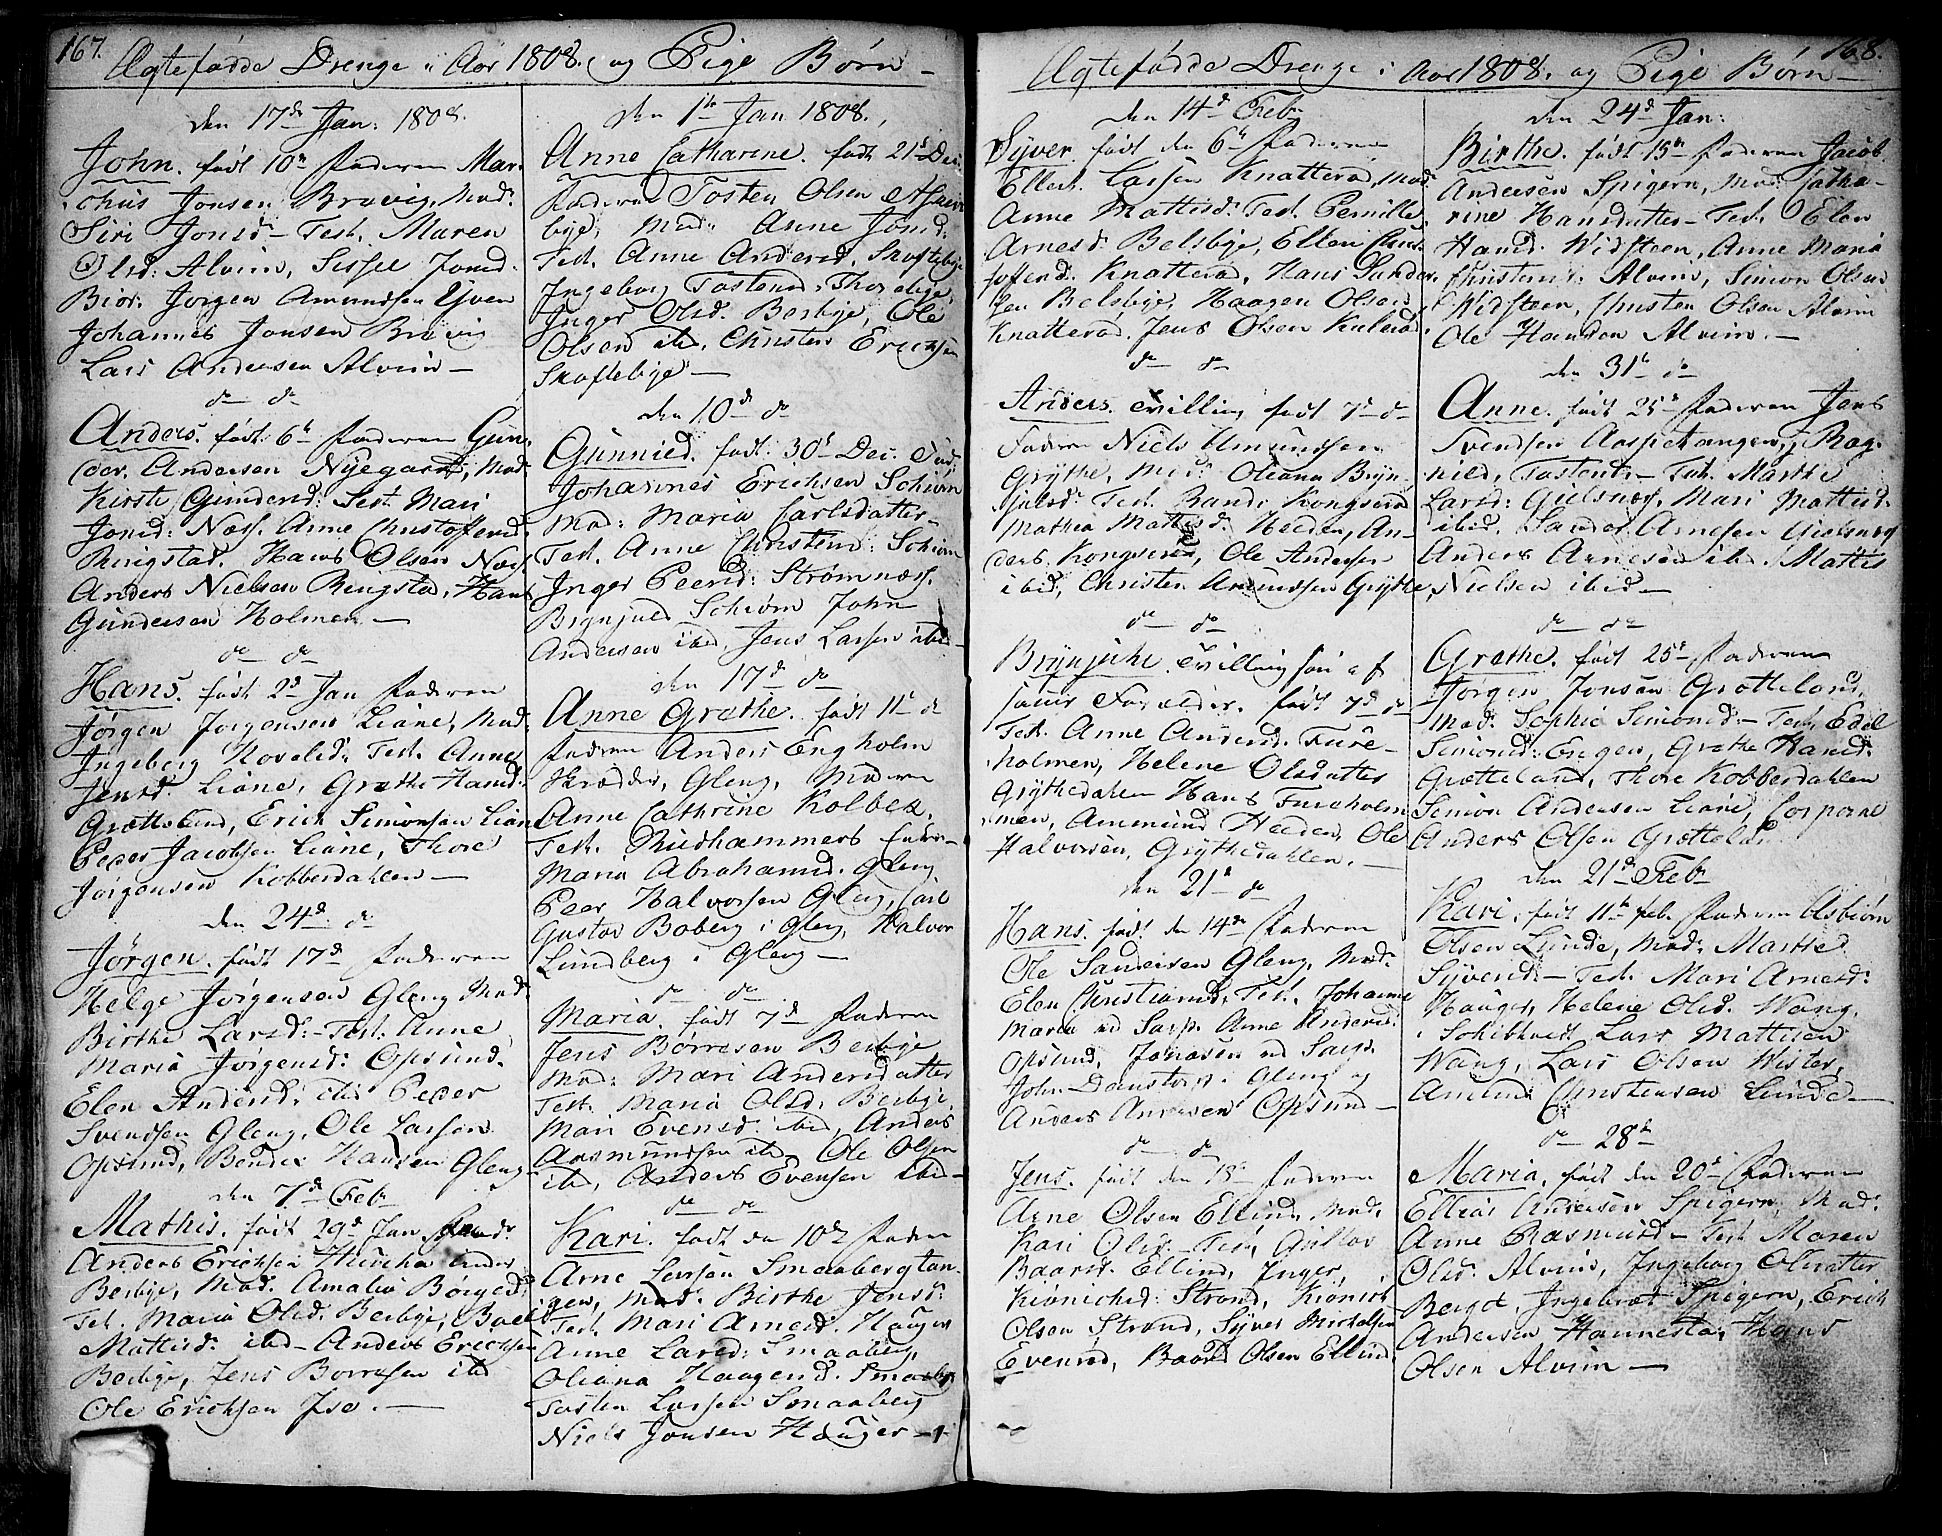 167.
Ægtefødde Drenge i Aar 1808. og Pige Børn
den 17de Jan: 1808.
John. født 10n Faderen Mar-
chus Jonsen Bravig, Mod:
Siri Jonsd- Test. Maren
Olsd: Alvim, Sissel Jonsd.
Biør. Jørgen Amundsen Tjven
Johannes Jonsen Bravig
Lars Andersen Alvim
do do
Anders. født. 6te Faderen Gun-
der Andersen Nyegaard, Mod.
Kirste Gundersd: Test. Mari
Jonsd: Næss. Anne Christoffersd.
Ringstad. Hans Olsen Næss.
Anders Nielsen Ringstad, Hans
Gundersen Holmen
do do
Hans. født 2d Jan Faderen
Jørgen Jørgensen Liane, Mod:
Ingeberg Hovelsd: Test. Anne
Jensd Liane, Grethe Hansd:
Grøtteland, Erich Simonsen Lian
Peder Jacobsen Liane, Thore
Jørgensen Kobberdahlen
den 24d. do
Jørgen. født 17d Faderen
Helge Jørgensen Gleng Mod:
Birthe Larsd:- Test. Anne
Maria Jørgensd: Opsund.
Elen Andersd: ibid Peder
Svendsen Gleng, Ole Larsen
Opsund, Bendix Hansen Gleng
den 7d Feb
Mathis. født 29d Jan
Anders Erichsen
Berbye, Mod. Amalia Børgesd:
Test. Maria Olsd. Berbye,
Mattisd: ibid- Anders Erichsen
Berbye, Jens Borresen ibid
Ole Erichsen Ise.
den 1te Jan 1808.
Anne Catharine. født 21d Dec.
Faderen Tosten Olsen
bye, Mod: Anne Jonsd:
Test. Anne Andersd, Skoftebye
Ingeborg Tostensd, Thorebye
Inger Olsd. Berbye, Ole
Olsen ibid, Christen Erichsen
Skoftebye
den 10d do
Gunnild. født: 30d Dec. Fad.
Johannes Erichsen Schiøm
Mod: Maria Carlsdatter-
Test. Anne Christend: Schiøm
Inger Peersd: Strømnæss.
Brynjuld Schiøm John
Andersen ibid, Jens Larsen ibid
den 17d do
Anne Grethe. født 11te do
Faderen Anders Engholm
Skræder, Gleng, Moderen
Anne Cathrine Kolbek,
Test. Rushammers
Maria Abrahamsd. Gleng
Peer Halvorsen Gleng, Carl
Gustav Boberg i Gleng, Halvor
Lundberg i Gleng
do do
Maria. født 7d Faderen
Jens Børresen Berbye
Mod: Mari Andersdatter
Test. Maria Olsd. Berbye,
Mari Evensd. ibid, Anders
Aasmundsen ibid, Ole Olsen
ibid, Anders Evensen ibid
do do
Kari. født den 10d Faderen
Arne Larsen Smaabergtan-
gen, Mod. Birthe Jensd:
Test. Mari Arnesd. Hauger
Anne Larsd: Smaaberg,
Oleana Haagensd. Smaaberg
Tosten Larsen Smaaberg
Niels Jonsen Hauger
168.
Ægtefødde Drenge i Aar 1808. og Pige Børn
den 14d Feb
Syver født den 6te Faderen
Ellert Larsen Knatterød, Mod.
Anne Mattisd: Test. Pernille
Arnesd. Belsbye, Ellen Chris-
tofersd. Knatterød, Hans Gunder-
sen Belsbye, Haagen Olsen
Knatterød. Jens Olsen Kulerød.
do do
Anders. Tvilling født 7d do
Faderen Niels Amundsen
Grythe, Mod: Oleana Bryn-
julsd: Test. Randi Kongsrød
Mathea Mattisd: Heeden, An-
ders Kongsrød, Ole Andersen
ibid, Christen Amundsen Grythe,
do do
Brynjuhl. Tvilling søn af
samme Forældre. født 7d do
Test. Anne Andersd. Fure-
holmen, Helene Olsdatter
Grythedalen Hans Fureholm-
men, Ammund Heeden, Ole
Halvorsen, Grythedahlen.
den 21d do
Hans. født den 14de Faderen
Ole Sandersen Gleng, Mod:
Elen Christiansd, Test. Johanne
Maria ved Sarp. Anne Andersd.
Opsund, Jonasen ved Sarp.
John Danstorp. Gleng og
Anders Andersen Opsund
do do
Jens. født den 13de Faderen
Arne Olsen Ellind, Mod:
Kari Olsd- Test.
Baarsd. Ellind, Inger,
Kionichsd: Strønd, Kionich
Olsen Strønd, Syver Michelsen
Evenrød, Baard Olsen Ellind
den 24d Jan:
Birthe. født 15n Faderen Jacob
Andersen Spigern, Mod. Catha-
rine Hansdatter- Test. Elen
Hansd. Widsteen, Anne Maria
Christensd: Alvim, Simon Olsen
Widsteen, Christen Olsen Alvim
Ole Hansen Alvim.
den 31te do
Anne. født 25d Faderen Jens
Svendsen Aaspetangen, Rag-
nild, Tostensd- Test. Marthe
Larsd: Gielsnæss, Mari Mattisd.
ibid. Sander Arnesen Gielsnæss
Anders Arnesen ibid. Mattis
Nielsen ibid
do do
Grethe. født 25d Faderen
Jørgen Jonsen Grøtteland,
Mod: Sophie Simonsd- Test. Edel
Simonsd: Engen, Grethe Hansd:
Grøtteland, Thore Kobberdahlen
Simon Andersen Liane, Corporal
Anders Olsen Grøtteland
den 21d Feb
Kari, født 11te feb. Faderen Asbiørn
Olsen Lunde, Mod: Marthe
Syversd:- Test. Mari Arnesd:
Hauger, Helene Olsd. Wang,
i Schibtved, Lars Mattisen
Wang, Lars Olsen Wister,
Amund Christensen Lunde
do 28te
Maria, født den 20d Faderen
Ellias Andersen Spigern, Mod:
Anne Rasmusd- Test. Maren
Olsd: Alvim, Ingeborg Olsdatter
Berget, Ingebret Spigern, Erich
Andersen Hannestad, Hans
Olsen Alvim